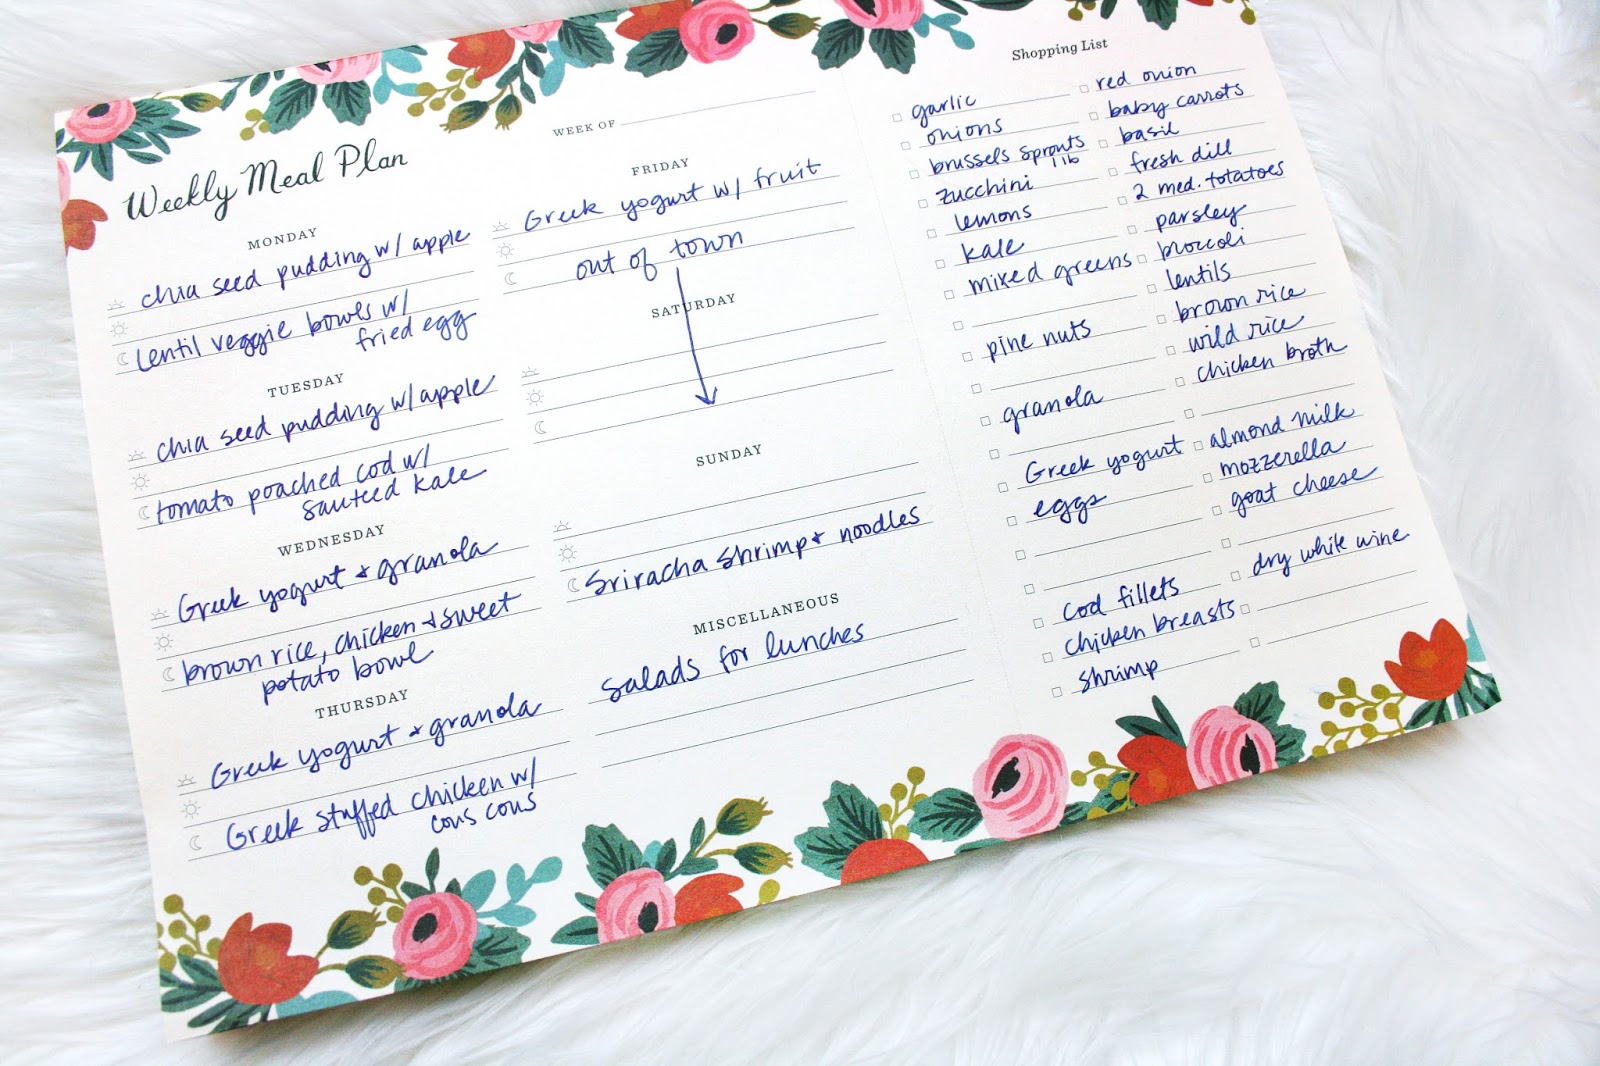 Weekly Meal Plan
WEEK OF
MONDAY
chia seed pudding w/ apple
lentil veggie bowls w/
fried egg
TUESDAY
chia seed pudding w/ apple
tomato poached cod w/
sauteed kale
WEDNESDAY
Greek yogurt + granola
brown rice, chicken + sweet
potato bowl
THURSDAY
Greek yogurt + granola
Greek stuffed chicken w/
cous cous
FRIDAY
Greek yogurt w/ fruit
out of town
SATURDAY
SUNDAY
Sriracha shrimp + noodles
MISCELLANEOUS
salads for lunches
Shopping List
garlic
onions
brussels sprouts
1 lb
zucchini
lemons
kale
mixed greens
pine nuts
granola
Greek yogurt
eggs
cod fillets
chicken breasts
shrimp
red onion
baby carrots
basil
fresh dill
2 med. totatoes
parsley
broccoli
lentils
brown rice
wild rice
chicken broth
almond milk
mozzerella
goat cheese
dry white wine